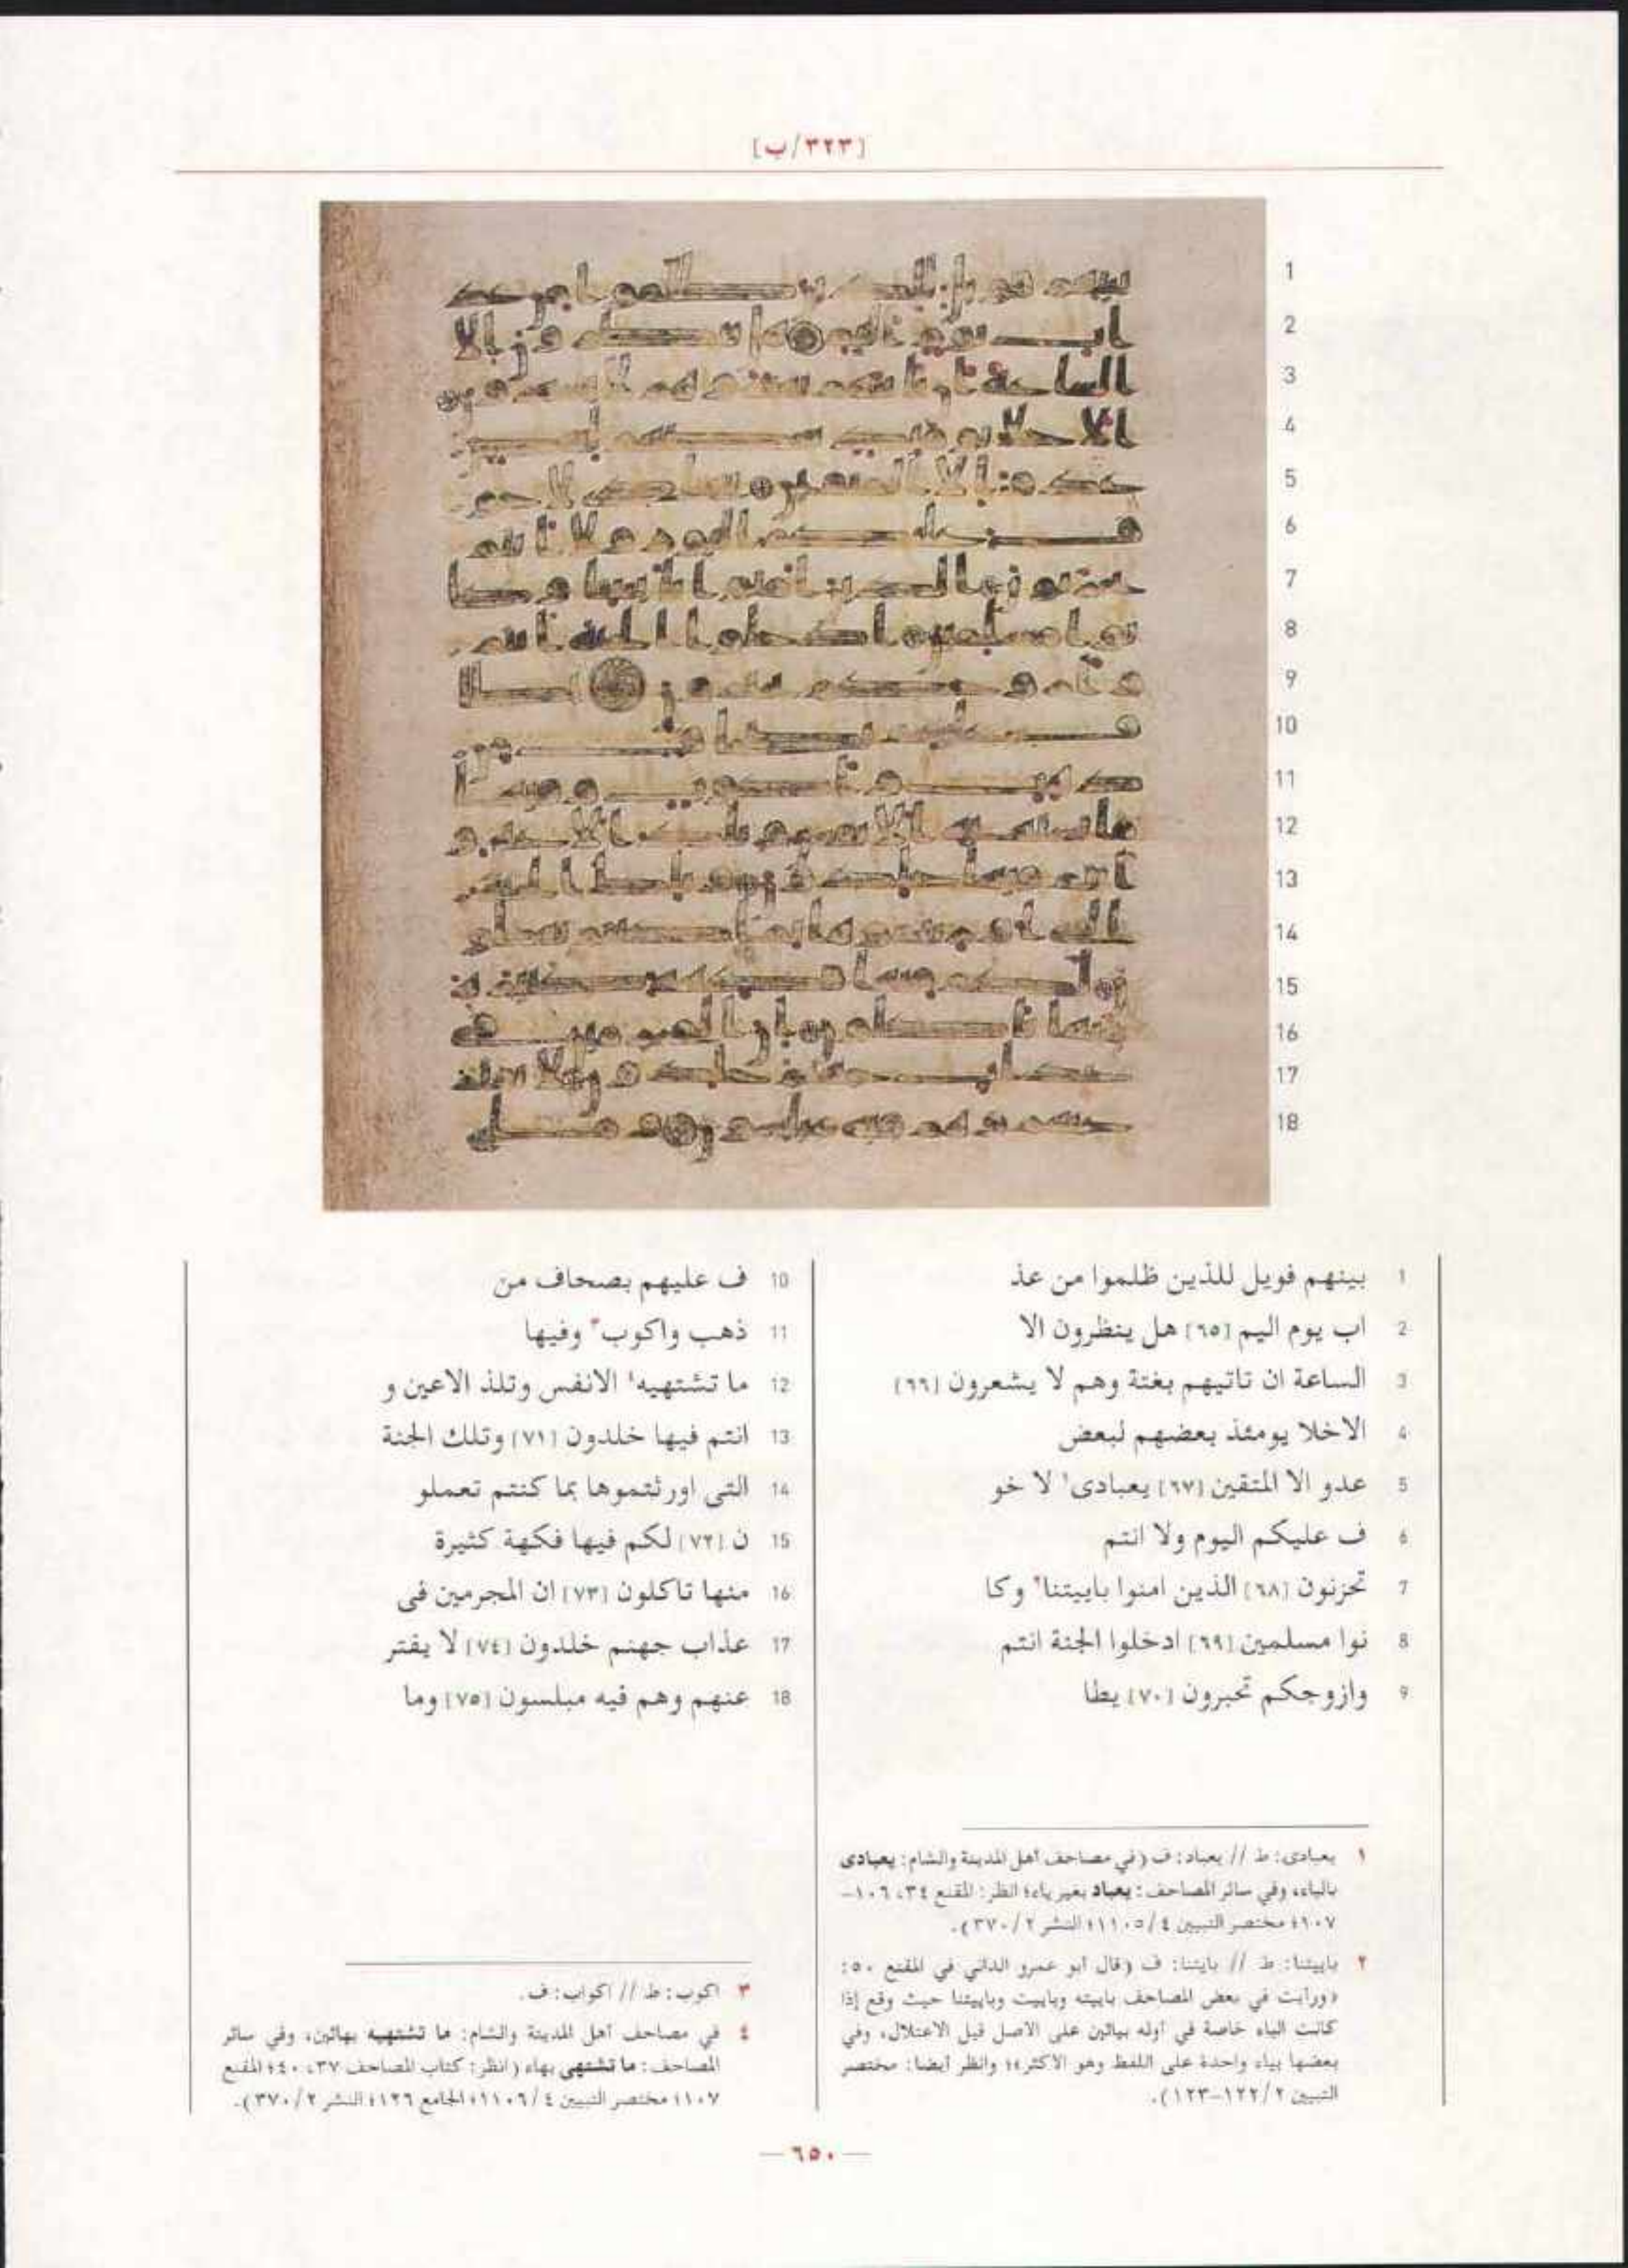 [٣٢٣/ب]
1
2
3
4
5
6
7
8
9
10
11
12
13
14
15
16
17
18
1 بينهم فويل للذين ظلموا من عذ
2 اب يوم اليم [٦٥] هل ينظرون الا
3 الساعة ان تاتيهم بغتة وهم لا يشعرون [٦٦]
4 الاخلا يومئذ بعضهم لبعض
5 عدو الا المتقين [٦٧] يعبادى١ لا خو
6 ف عليكم اليوم ولا انتم
7 تحزنون [٦٨] الذين امنوا باييتنا٢ وكا
8 نوا مسلمين [٦٩] ادخلوا الجنة انتم
9 وازوجكم تحبرون [٧٠] يطا
10 ف عليهم بصحاف من
11 ذهب واكوب٣ وفيها
12 ما تشتهيه٤ الانفس وتلذ الاعين و
13 انتم فيها خلدون [٧١] وتلك الجنة
14 التى اورثتموها بما كنتم تعملو
15 ن [٧٢] لكم فيها فكهة كثيرة
16 منها تاكلون [٧٣] ان المجرمين فى
17 عذاب جهنم خلدون [٧٤] لا يفتر
18 عنهم وهم فيه مبلسون [٧٥] وما
١ يعبادى: ط // يعباد: ف (في مصاحف أهل المدينة والشام: يعبادى
بالياء، وفي سائر المصاحف: يعباد بغير ياء؛ انظر: المقنع ٣٤، ١٠٦-
١٠٧؛ مختصر التبيين ١١٠٥/٤؛ النشر ٣٧٠/٢).
٢ باييتنا: ط // بايتنا: ف (قال أبو عمرو الداني في المقنع ٥٠:
«ورأيت في بعض المصاحف باييته وباييت وباييتنا حيث وقع إذا
كانت الباء خاصة في أوله بيائين على الاصل قبل الاعتلال، وفي
بعضها بياء واحدة على اللفظ وهو الاكثر»؛ وانظر أيضا: مختصر
التبيين ١٢٢/٢-١٢٣).
٣ اكوب: ط // اكواب: ف.
٤ في مصاحف أهل المدينة والشام: ما تشتهيه بهائين، وفي سائر
المصاحف: ما تشتهى بهاء (انظر: كتاب المصاحف ٣٧، ٤٠؛ المقنع
١٠٧؛ مختصر التبيين ١١٠٦/٤؛ الجامع ١٢٦؛ النشر ٣٧٠/٢).
— ٦٥٠ —